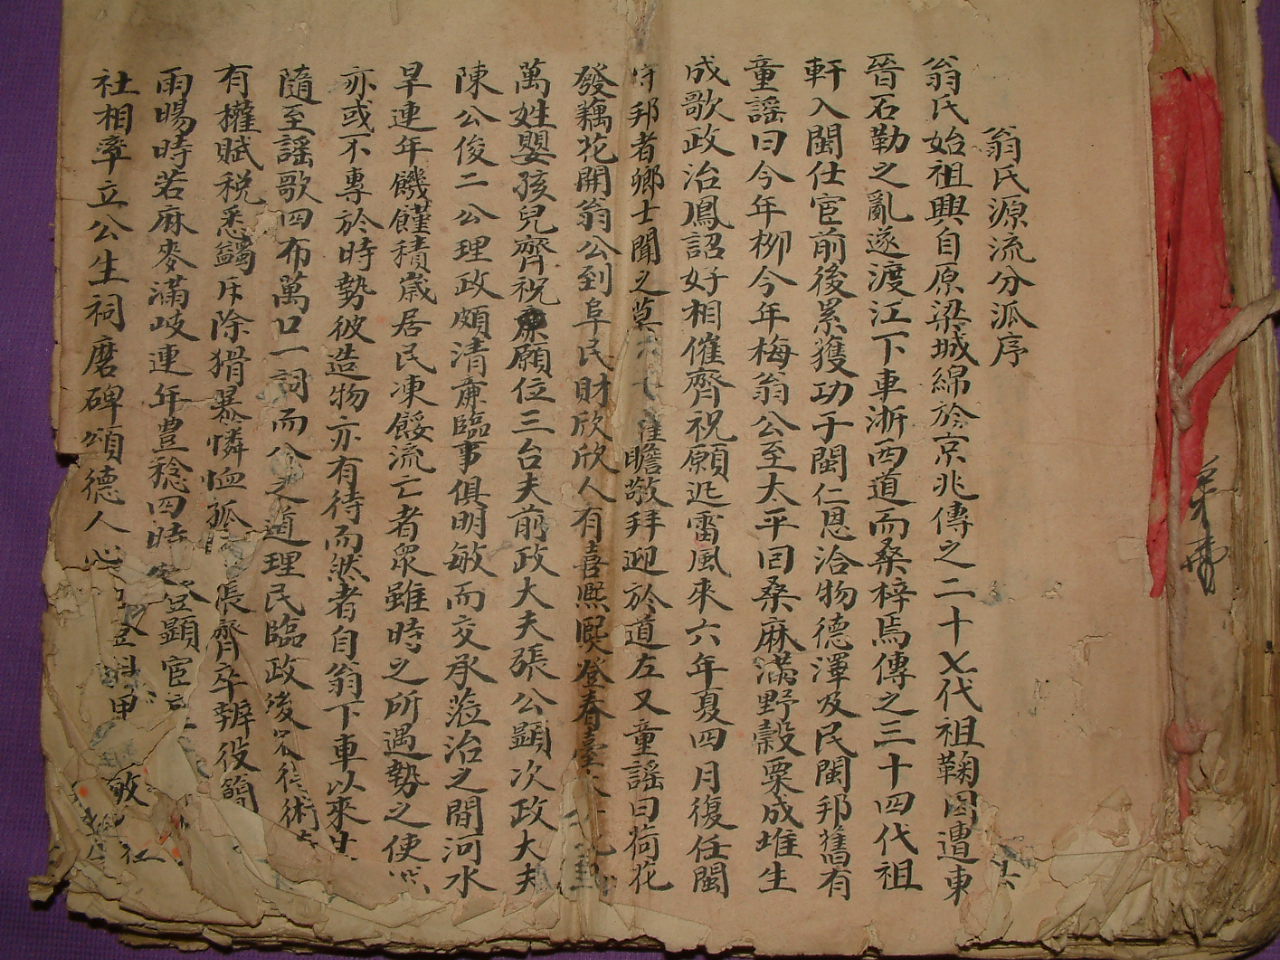 翁氏源流分派序
翁氏始祖興自原梁城綿於京兆傳之二十七代祖鞠因遭東
晉石勒之亂遂渡江下車淅西道而桑梓焉傳之三十四代祖
軒入閩仕宦前後累獲功于閩仁恩洽物德澤及民閩邦舊有
童謡曰今年栁今年梅翁公至太平囘桑麻滿野穀粟成堆生
成歌政治鳳詔好相催齊祝願迅雷風來六年夏四月復任閩
邦者鄉士聞之莫不 瞻敬拜迎於道左又童謡曰荷花
發藕花開翁公到阜民財欣欣人有喜熙熙登春臺
萬姓嬰孩兒齊祝願位三台夫前政大夫張公顕次政大夫
陳公俊二公理政頗清肅臨事俱明敏而交承蒞治之間河水
旱連年饑饉積嵗居民凍餒流亡者衆雖時之所遇勢之使
亦或不專於時勢彼造物亦有待而然者自翁下車以來
隨至謡歌四布萬口一詞而公之道理民臨政後 術
有權賦税悉蠲斥除猾暴憐恤孤 張齊卒辦役
雨暘時若麻麥滿岐連年豊稔四時 顕宦
社相率立公生祠磨碑頌德人心 登 甲